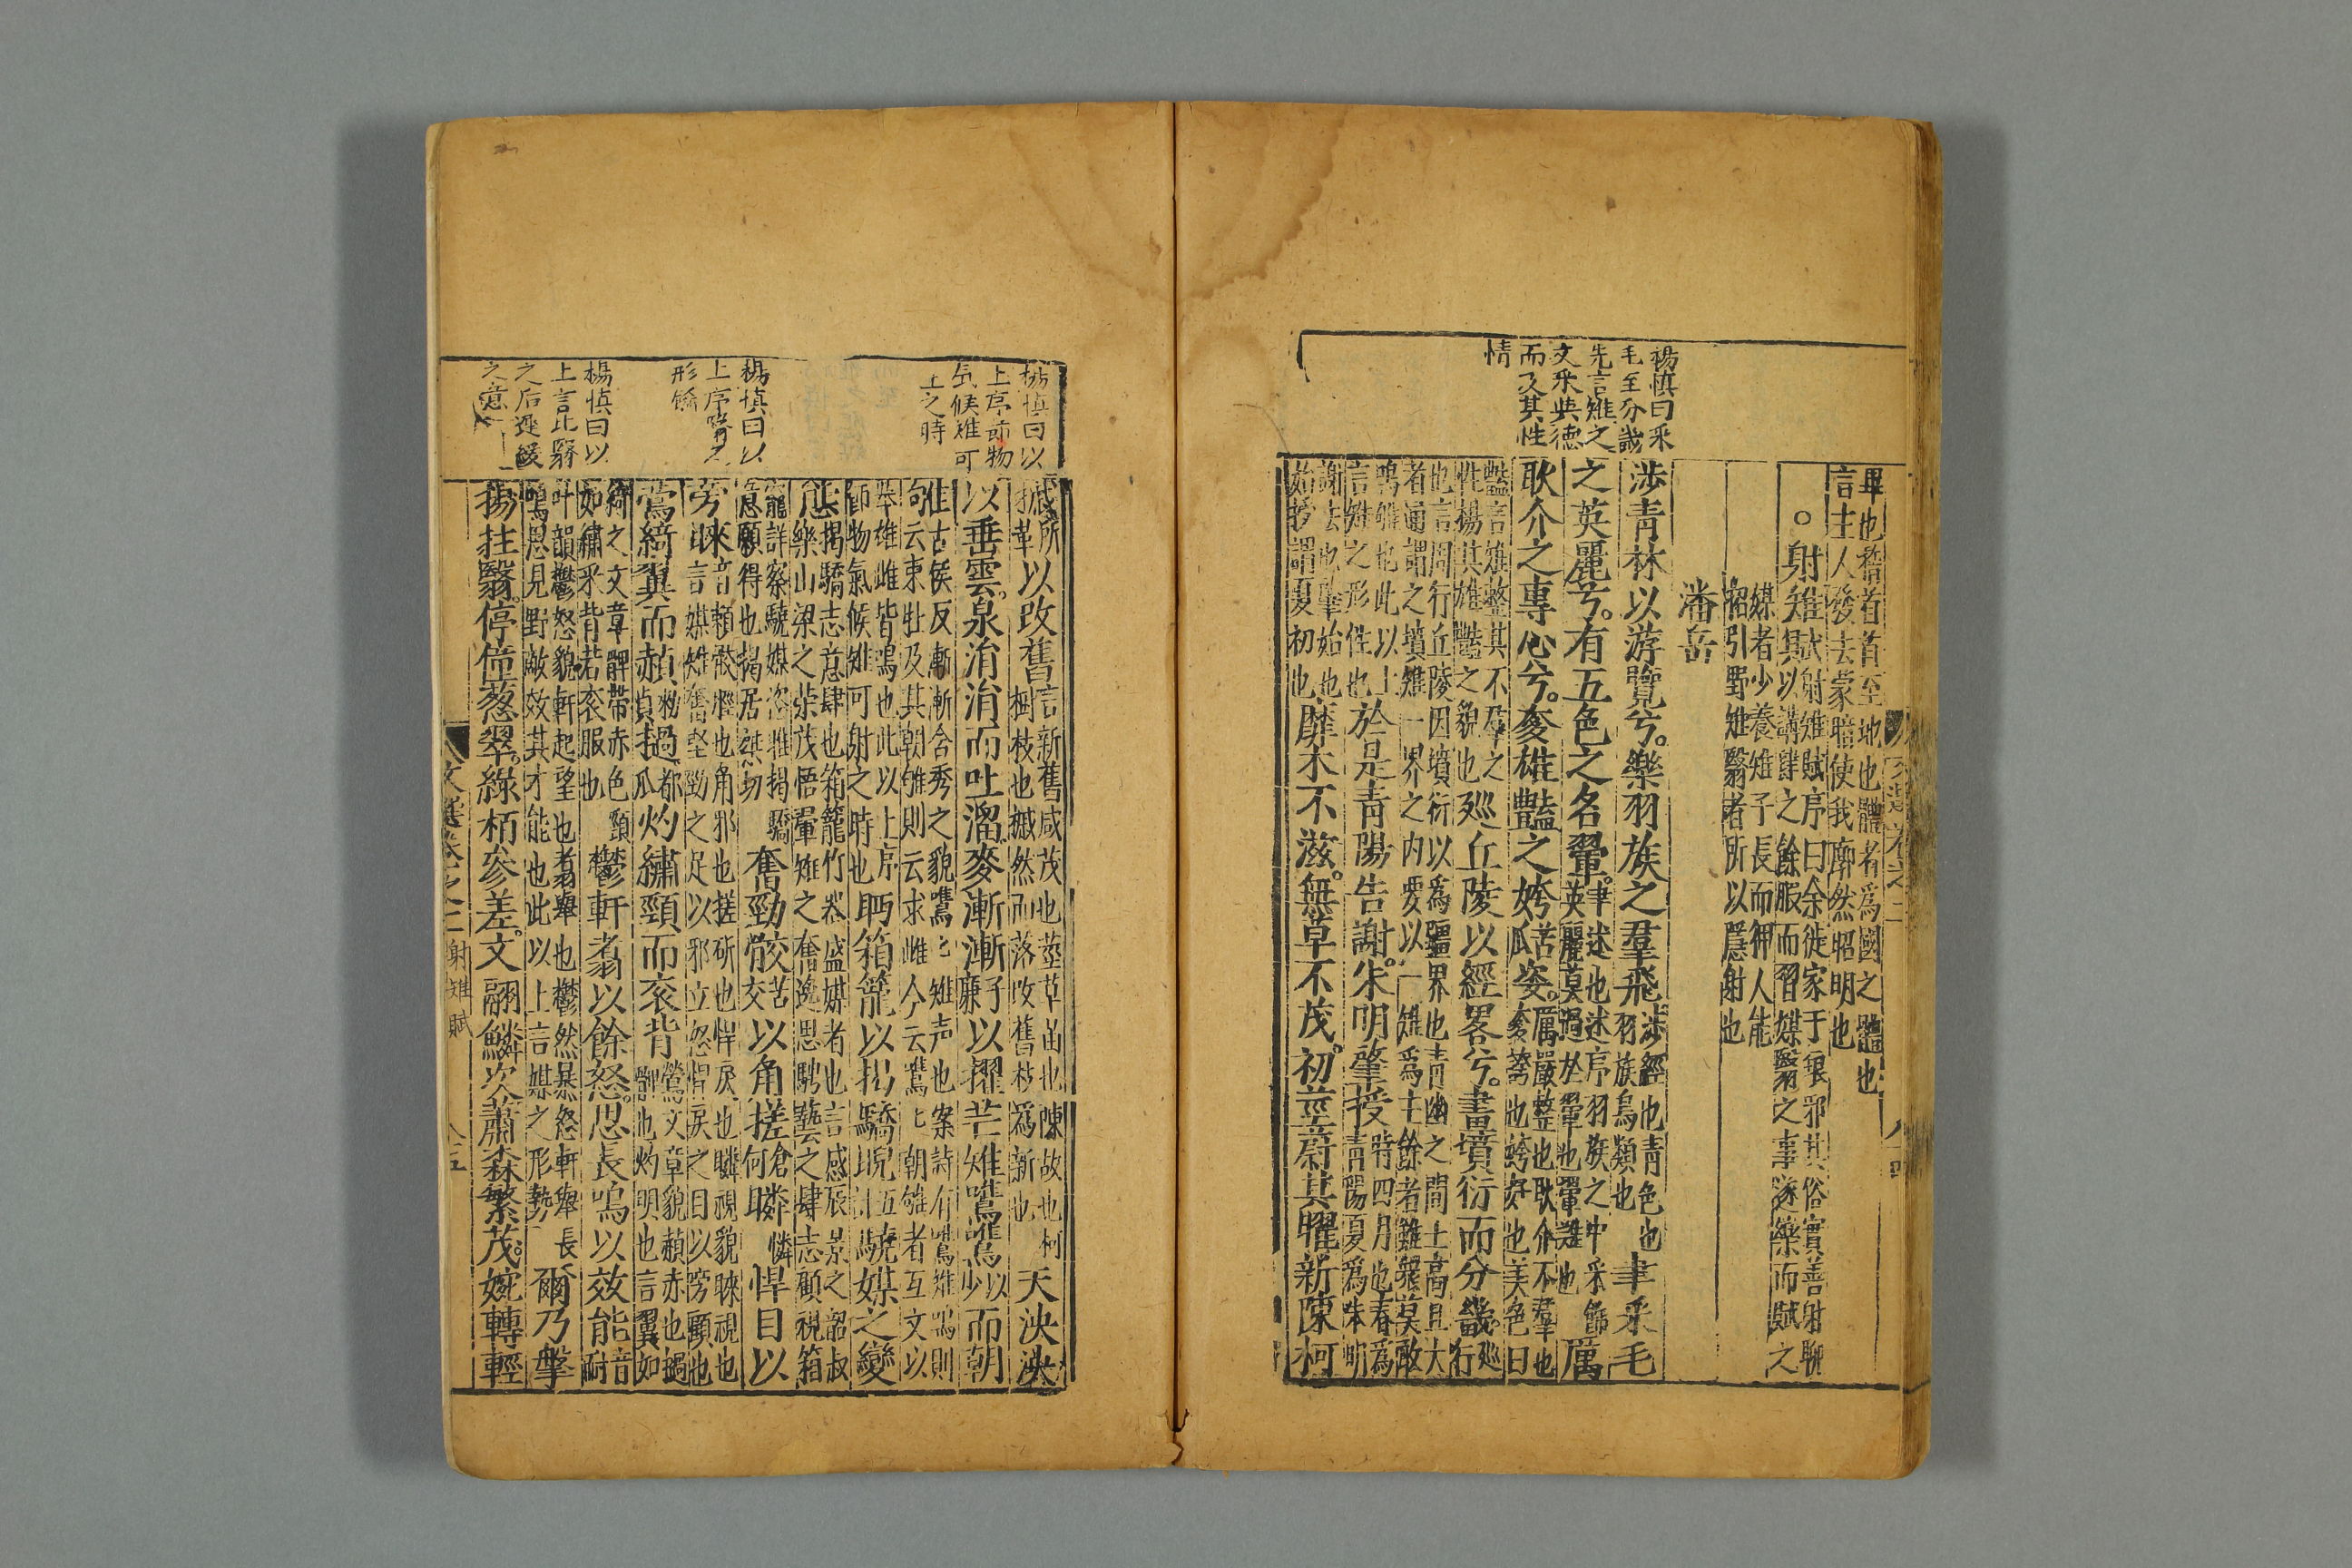 楊慎曰采
毛至分畿
先言雉之
文采與德
而又其性
情
畢也稽首首至地也體者爲國之體也
言主人發去蒙暗使我廓然昭明也
射雉賦射雉賦序曰余徙家于琅邪其俗實善射聊
以講肄之餘暇而習媒翳之事遂樂而賦之
媒者少養雉子長而狎人能
招引野雉翳者所以隱射也
潘岳
涉青林以游覽兮。樂羽族之羣飛涉經也青色也
羽族鳥類也聿采毛
之英麗兮。有五色之名翬。聿述也述序羽族之中采飾
英麗莫過於翬也翬雉也厲
耿介之專心兮。奓雄豔之姱苦瓜姿。厲嚴整也耿介不羣也
奓奢也姱好也美色曰
豔言雉整其不羣之
性楊其雄豔之貌也廵丘陵以經畧兮。畫墳衍而分畿。廵行
也言周行丘陵因墳衍以爲疆界也青幽之間土高且大
者通謂之墳雉一界之内要以一雉爲主餘者雖衆莫敢
鳴雊也此以上
言雉之形性也於是青陽告謝。朱明肇授時四月也春爲
青陽夏爲朱明
謝去也肇始也
始授謂夏初也靡木不滋。無草不茂。初莖蔚其曜新陳柯
楊慎曰以
上序節物
氣候雉可
上之時
楊慎曰以
上序
形飾
楊慎曰以
上言比翳
之后遲緩
之意
槭所革以改舊言新舊咸茂也莖草莖也陳故也柯
樹枝也槭然而落改舊枝爲新也天泱泱
以垂雲。泉涓涓而吐溜。麥漸漸以擢芒雉鷕鷕以少而朝
雊古侯反漸漸含秀之貌鷕鷕雉声也案詩有鷕雉鳴則
句云求牡及其朝雊則云求雌今云鷕鷕朝雊者互文以
舉雄雌皆鳴也此以上序
節物氣候雉可射之時也眄箱籠以揭驕睨驍媒之變
態揭驕志意肆也箱籠竹器盛媒者也言感辰景之韶叔
樂山梁之柴茂悟翬雉之奮逸思騁藝之肆志顧視箱
籠詳察驍媒恣雅揭驕
意願得也揭居桀切奮勁骹苦交以角搓倉何瞵憐悍目以
旁睞音頼骹脛也角邪也搓斫也悍戾也瞵視貌睞視也
言媒雉奮堅勁之足以邪立怒悍戾之目以旁顧也
鶯綺翼而赬撾都瓜灼繡頸而衮背鶯文章貌赬赤也撾
髀也灼明也言翼如
綺之文章髀帶赤色頸
如繡采背若衮服也鬱軒翥以餘怒。思長鳴以效能音耐
叶韻鬱怒貌軒起望也翥舉也鬱然暴怒軒舉長
鳴思見野敵效其才能也此以上言媒之形勢爾乃擎
揚拄翳。停僮葱翠。綠栢參差。文翮鱗次蕭森繁茂。婉轉輕
文選卷之二
射雉賦
八五